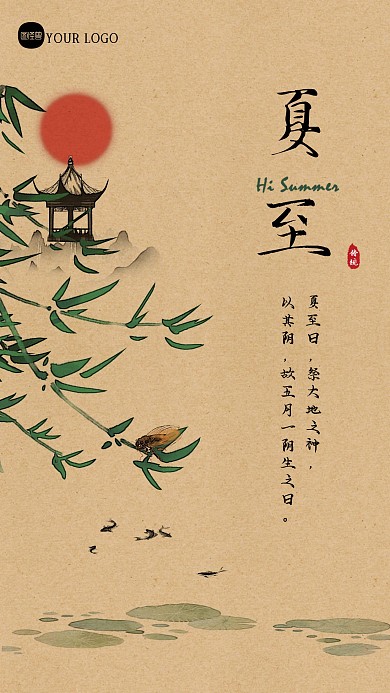 YOUR LOGO
夏至
Hi Summer
夏至日，祭大地之神，
以其阴，故五月一阴生之日。